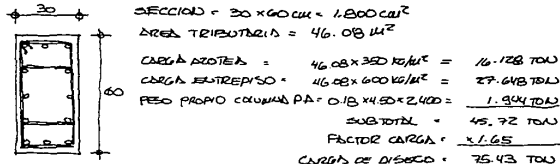 30
60
SECCION = 30 x 60 cm = 1,800 cm²
AREA TRIBUTARIA = 46.08 M²
CARGA AZOTEA = 46.08 x 350 KG/M² = 16.128 TON
CARGA ENTREPISO = 46.08 x 600 KG/M² = 27.648 TON
PESO PROPIO COLUMNA P.A = 0.18 x 4.50 x 2,400 = 1.944 TON
SUBTOTAL = 45.72 TON
FACTOR CARGA = x 1.65
CARGA DE DISEÑO = 75.43 TON